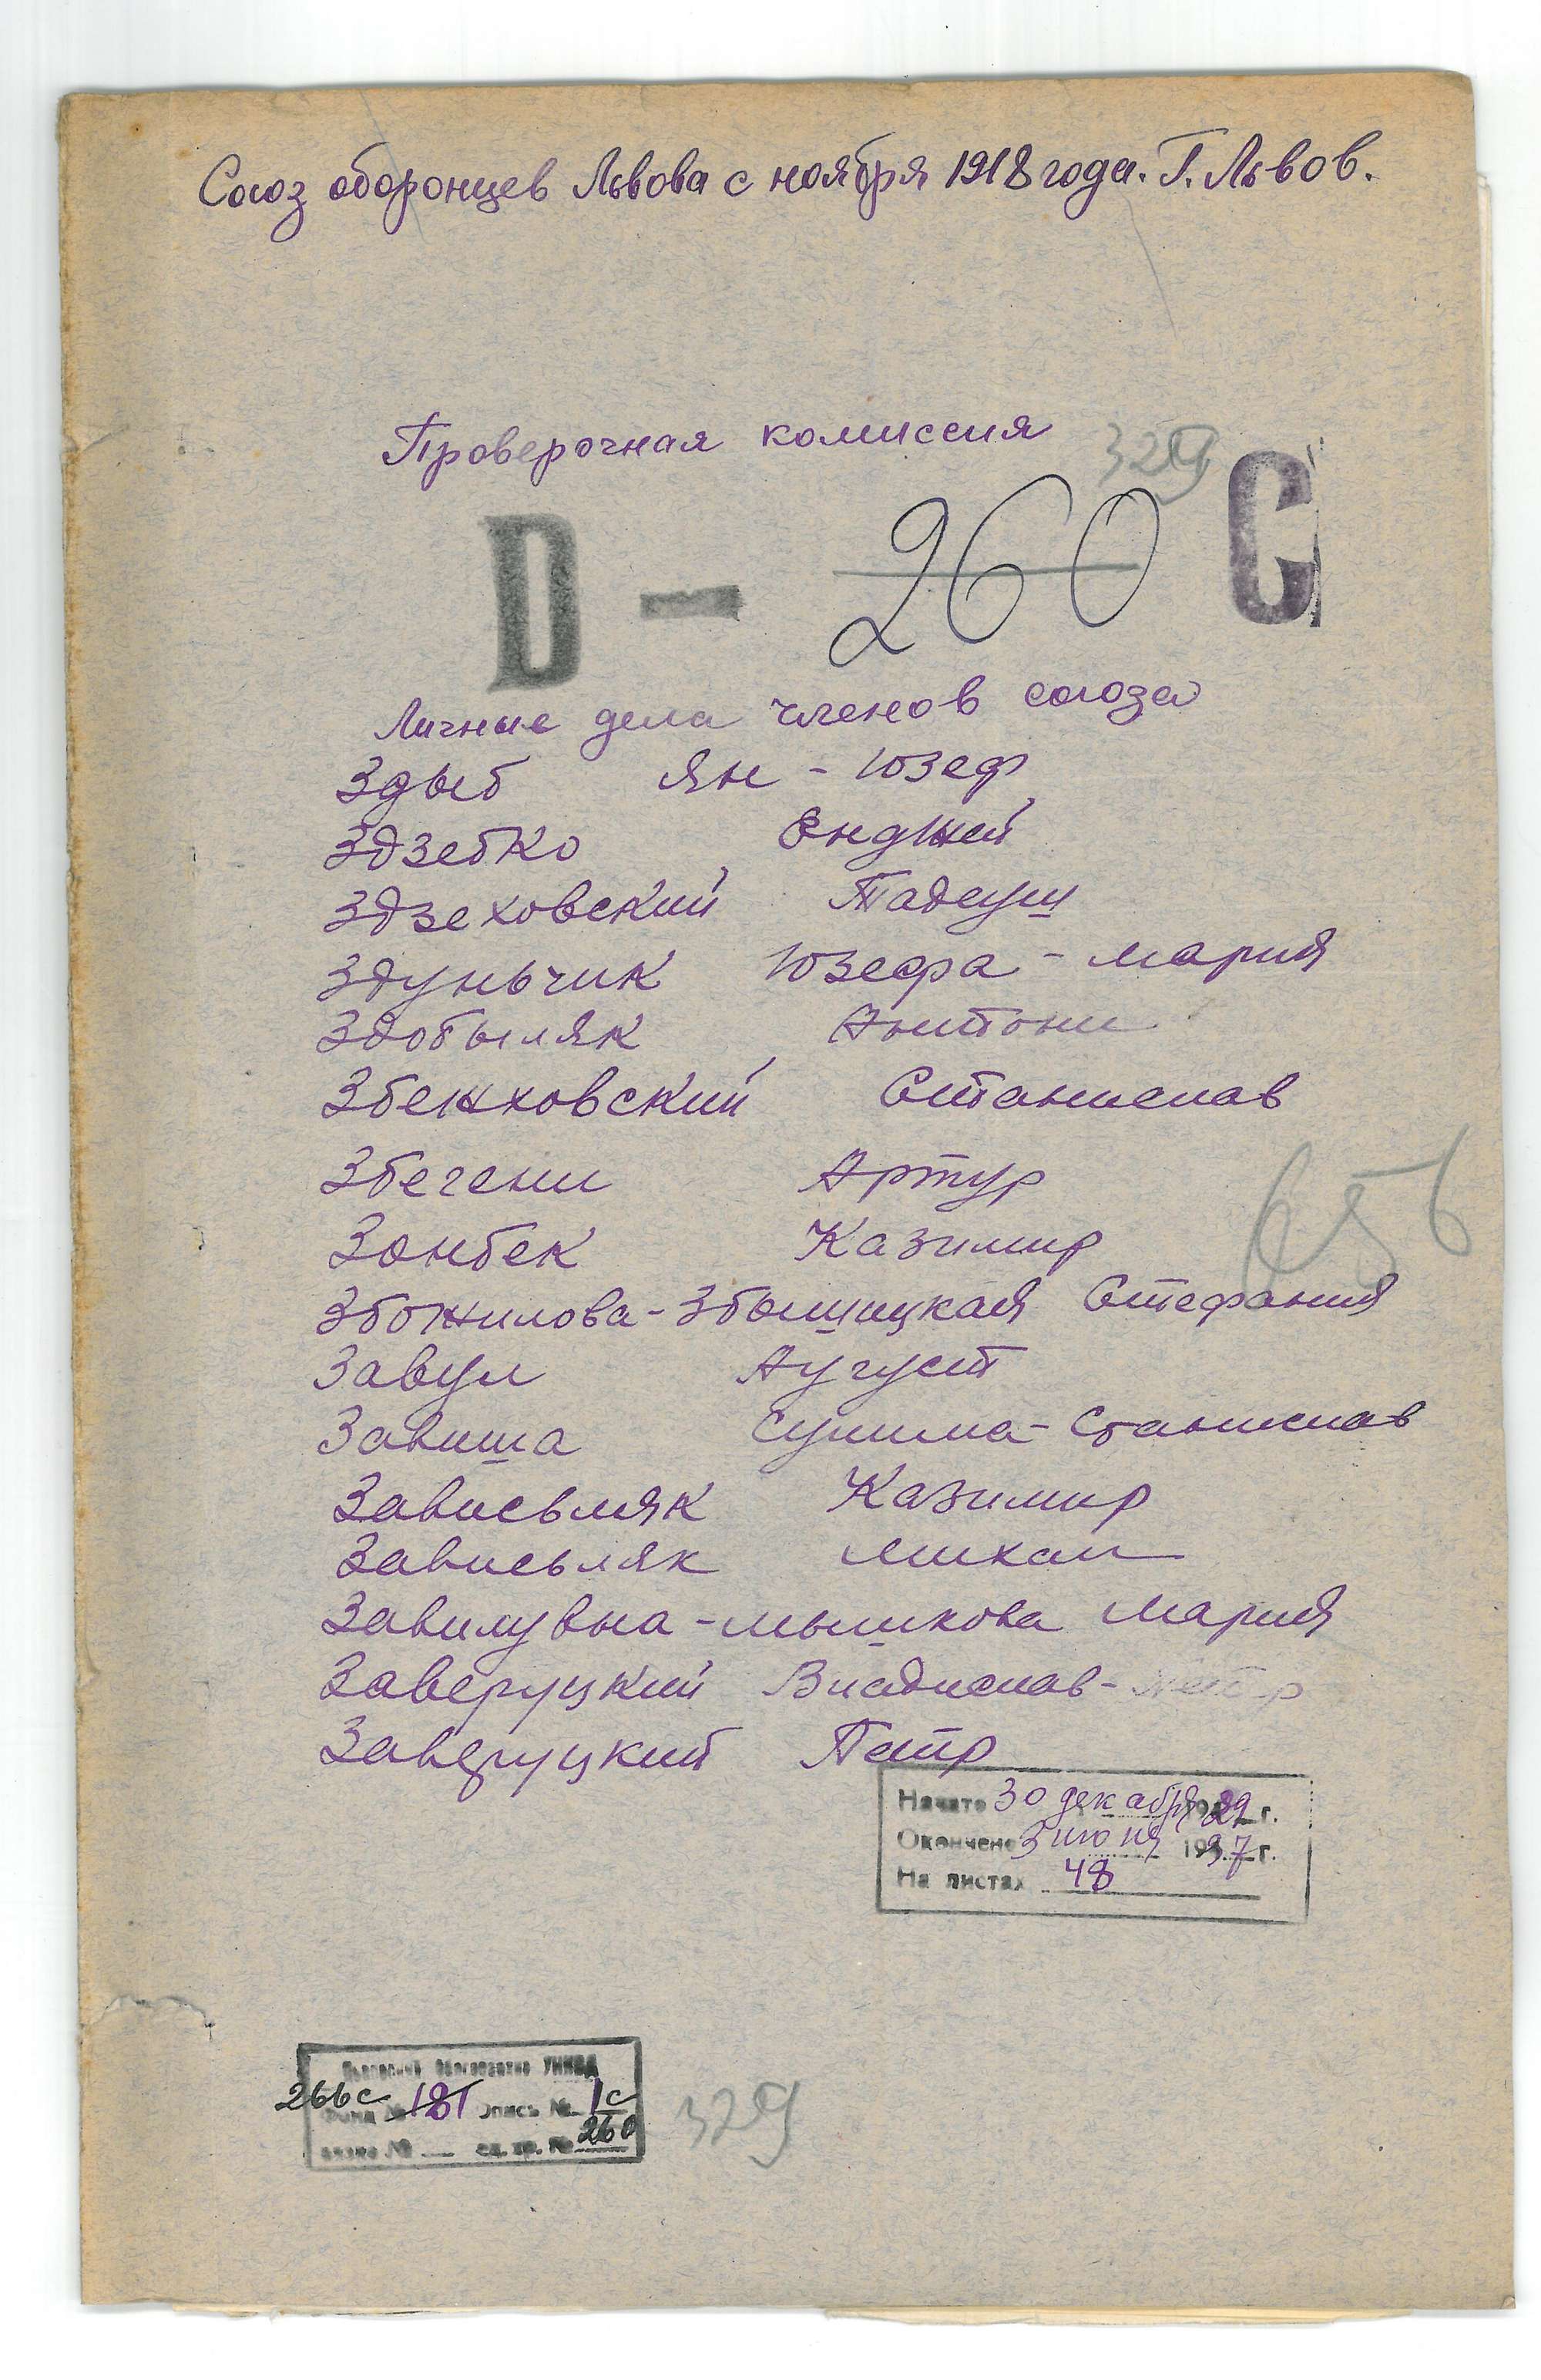 Союз оборонцев Львова с ноября 1918 года. Г. Львов.
Проверочная комиссия
329
D — 260 С
Личные дела членов союза
Здыб Ян - Юзеф
Здзебко Енджей
Здзеховский Тадеуш
Здуньчик Юзефа - Мария
Здобыляк Антони
Збенховский Станислав
Збегени Артур
656
Зонбек Казимир
Збожилова-Збышицкая Стефания
Завул Аугуст
Завиша Сулима-Станислав
Зависьляк Казимир
Зависьляк Михал
Завилувна-Мышкова Мария
Заверуцкий Владислав-Петр
Заверуцкий Петр
Начато 30 декабря 1929 г.
Окончено 5 июня 1937 г.
На листах 48
Львовский Облгосархив УНКВД
266с Фонд № 181 опись № 1с
связка № ед. хр. № 260
329